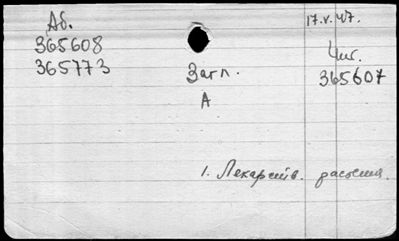 Аб.
365608
365773
Загл.
А
17.V.47.
Чит.
365607
1. Лекарств. растения.